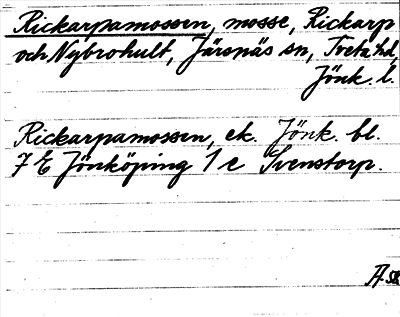 Rickarpamossen, mosse, Rickarp
och Nybrohult, Järsnäs sn, Tveta hd,
Jönk. l.
Rickarpamossen, ek. Jönk. bl.
7 E Jönköping 1 e Svenstorp.